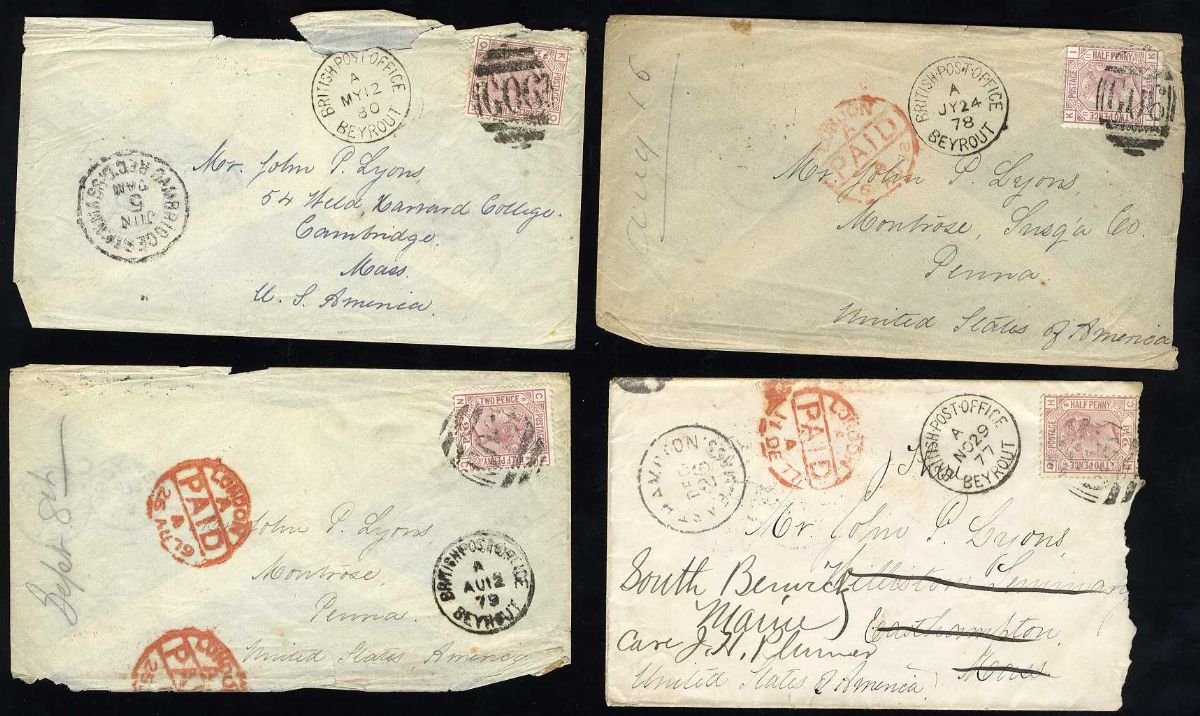 BRITISH·POST·OFFICE
A
MY12
80
BEYROUT
G06
Mr. John P. Lyons,
54 Weld, Harvard College.
Cambridge,
Mass.
U. S. America.
CAMBRIDGE STA. MASS.
REC'D.
JUN
5
AM
BRITISH·POST·OFFICE
A
JY24
78
BEYROUT
HALF PENNY
POSTAGE
G06
LONDON
A
PAID
Aug 6
Mr. John P. Lyons,
Montrose, Susq'a Co.
Penna.
United States of America
TWO PENCE
POSTAGE
LONDON
A
PAID
A
25 AU 79
Sept 8th
John P. Lyons,
Montrose,
Penna.
United States, America
BRITISH·POST·OFFICE
A
AU12
79
BEYROUT
LONDON
A
PAID
25
HALF PENNY
POSTAGE
TWO PENCE
BRITISH·POST·OFFICE
A
NO29
77
BEYROUT
LONDON
PAID
A
11 DE 77
EAST HAMPTON. MASS.
DEC
26
Mr John P. Lyons,
Williston Seminary
Easthampton,
Mass
South Berwick
Maine
Care J. H. Plumer
United States of America